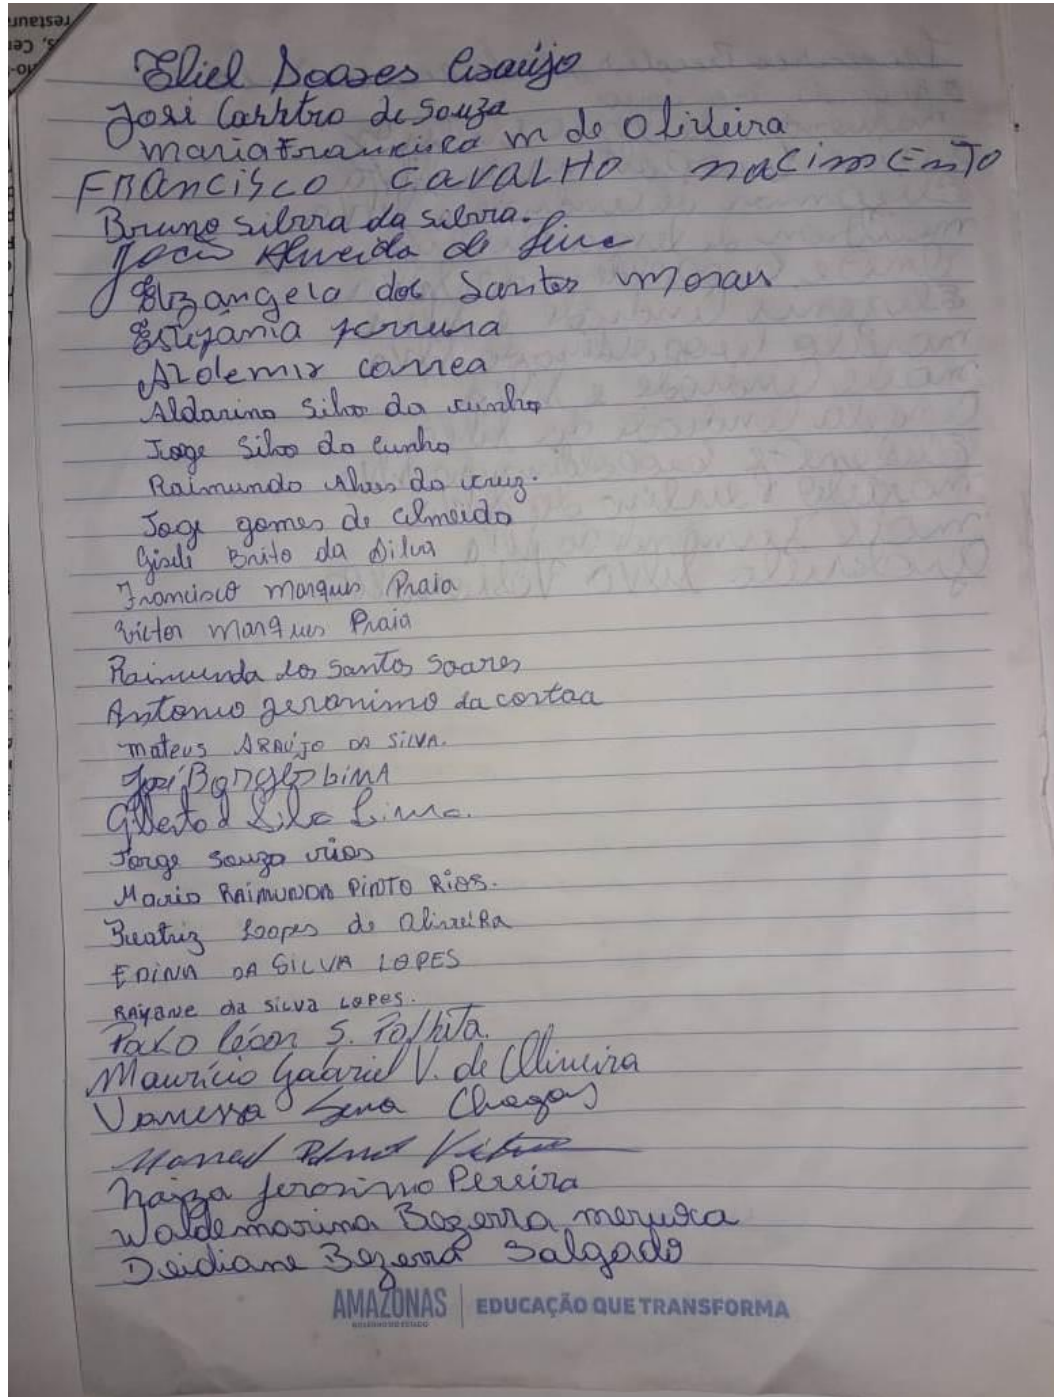 Eliel Soares Araújo
José Carstro de Souza
Maria Francisca m de Olivleira
FRAnCiSCO CAVALHO naCimCEnTO
Bruno silvra da silvra.
João Almeida de Lima
Elizangela dos Santos Morais
Estefânia ferreira
Aldemir correa
Aldarino Silva da cunha
Joge Silva da Cunha
Raimundo Alves da cruz.
Joge gomes de almeida
Gisele Brito da Silva
Francisco Marques Praia
Victor Marques Praia
Raimunda dos Santos Soares
Antonio jeronimo da costaa
mateus ARAÚJO DA SiLVA.
José LiMA
Gilberto d Silva Lima.
Jorge Souza rios
Maria RAIMUNDA PiNTO RiOS.
Beatriz Loopes de OliveiRa
EDINA DA SILVA LOPES
RAYANE da SiLVA LOPES.
S.
Maurício Gabriel V. de Oliveira
Vanessa Sena Chagas
Manoel
Naiza Jeronimo Pereira
Waldemarina Bezerra
Deidiane Bezerra Salgado
AMAZONAS EDUCAÇÃO QUE TRANSFORMA
GOVERNO DO ESTADO